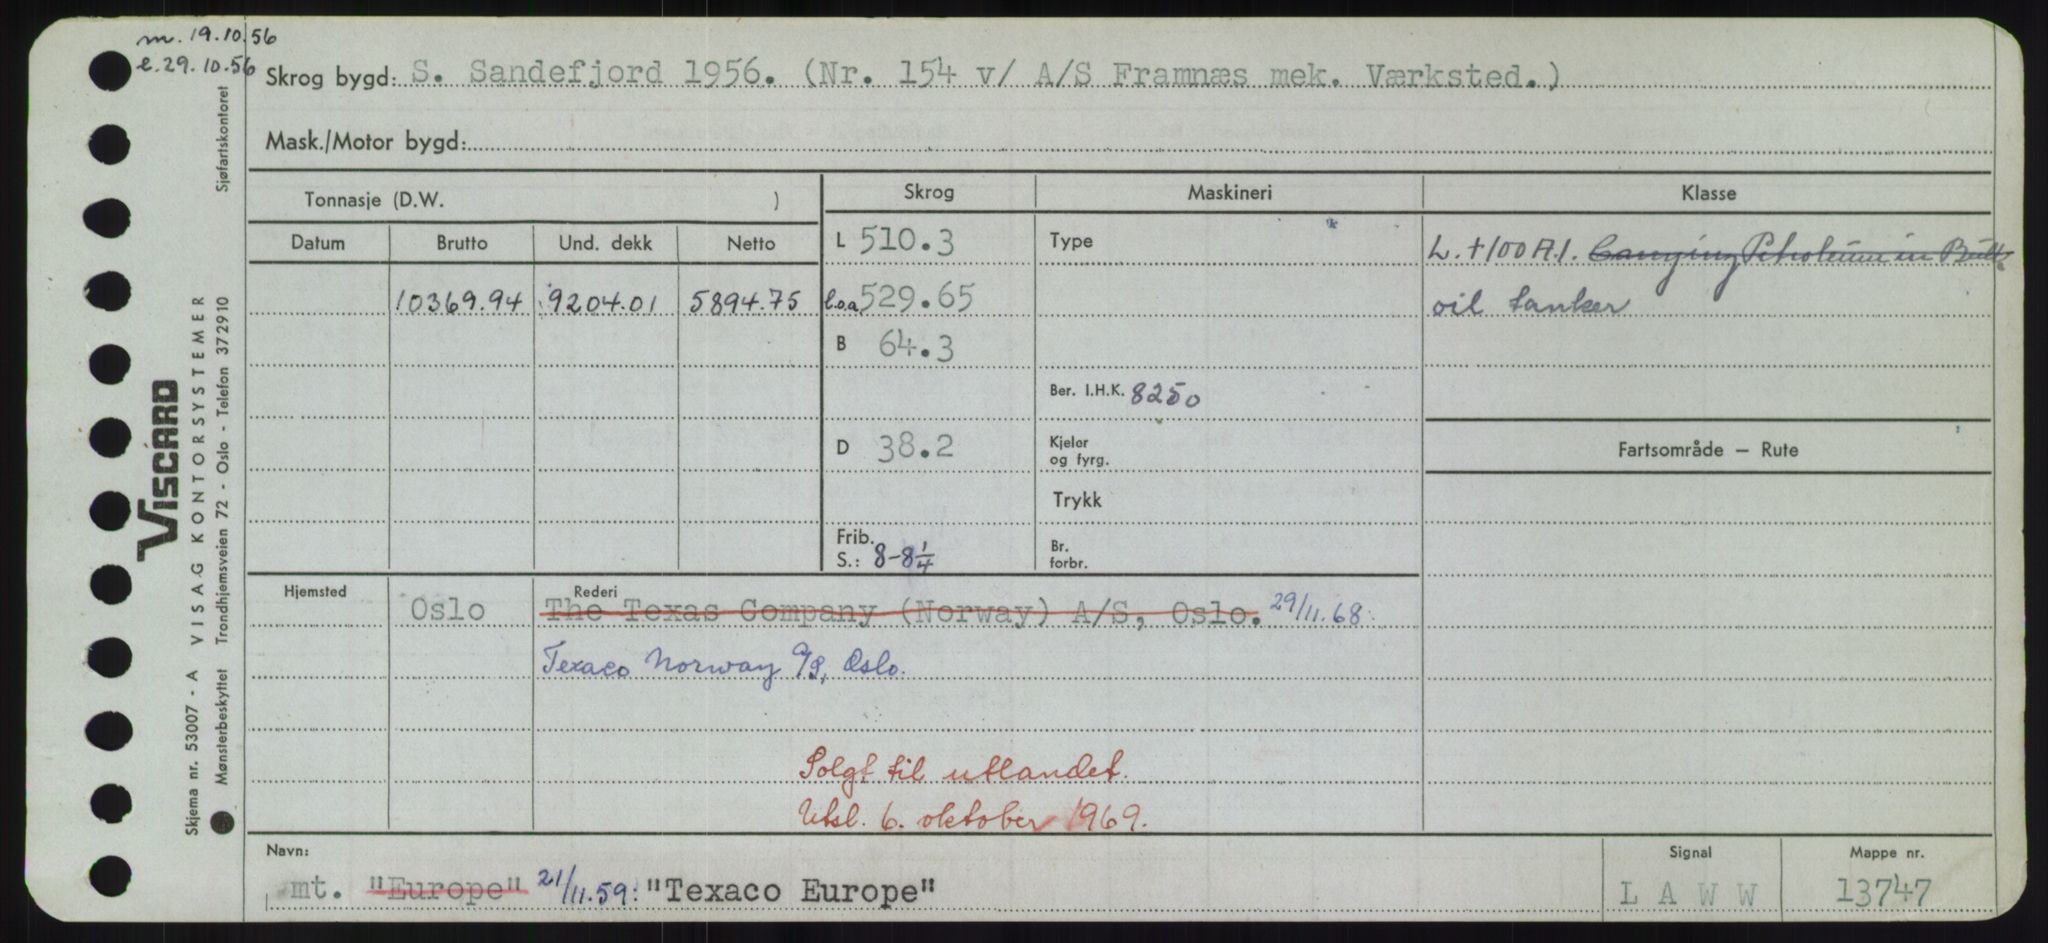 m. 19.10.56
e. 29.10.56
Skrog bygd: S. Sandefjord 1956. (Nr. 154 v/ A/S Framnæs mek. Værksted.)
Mask./Motor bygd:
Tonnasje (D.W. )
Skrog
Maskineri
Klasse
Datum
Brutto
Und. dekk
Netto
L 510.3
Type
L. +100 A.1. Carrying Petroleum in Bulk
10369.94
9204.01
5894.75
l.o.a 529.65
oil tanker
B 64.3
Ber. I.H.K. 8250
D 38.2
Kjeler
og fyrg.
Fartsområde — Rute
Trykk
Frib.
S.: 8-8 1/4
Br.
forbr.
Hjemsted
Oslo
Rederi
The Texas Company (Norway) A/S, Oslo. 29/11.68:
Texaco Norway A/S, Oslo.
Solgt til utlandet.
Utsl. 6. oktober 1969.
Navn:
mt. "Europe" 21/11.59: "Texaco Europe"
Signal
L A W W
Mappe nr.
13747
VISCARD
Skjema nr. 53007 - A VISAG KONTORSYSTEMER
Mønsterbeskyttet Trondhjemsveien 72 - Oslo - Telefon 372910
Sjøfartskontoret